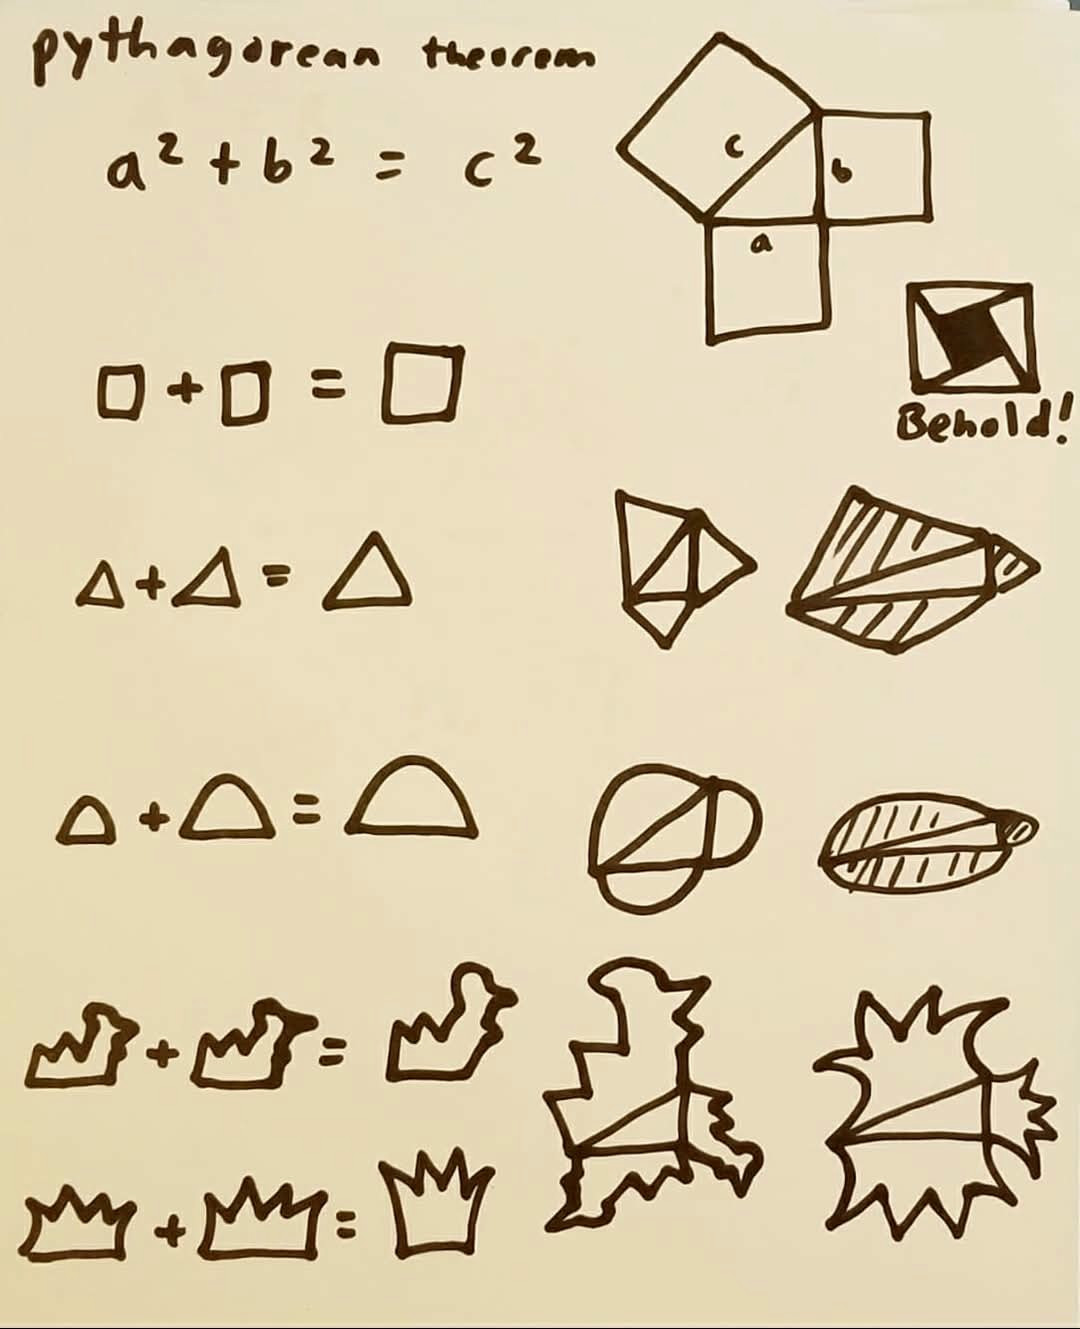 pythagorean theorem
a² + b² = c²
c
b
a
Behold!